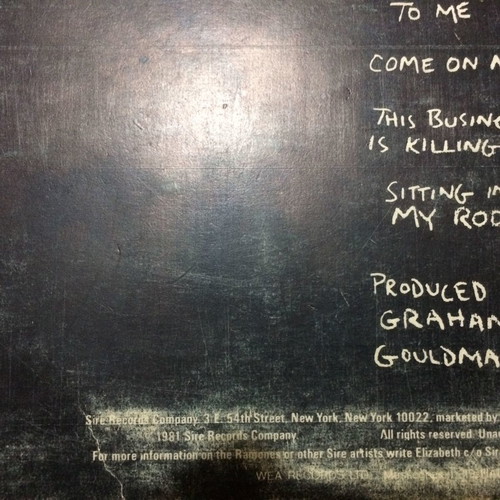 TO ME
COME ON
THIS BUSINE
IS KILLING
SITTING IN
MY ROO
PRODUCED
GRAHAM
GOULDMA
Sire Records Company, 3 E. 54th Street, New York, New York 10022, marketed by
1981 Sire Records Company All rights reserved. Una
For more information on the Ramones or other Sire artists write Elizabeth c/o Sir
WEA RECORDS LTD.